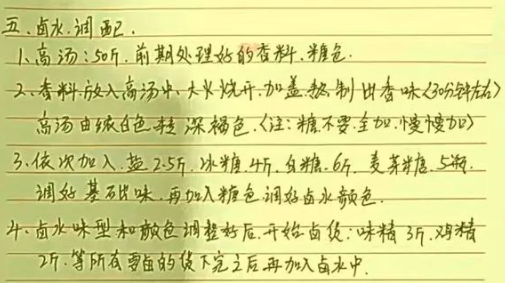 五、卤水调配.
1、高汤:50斤.前期处理好的香料.糖色.
2、香料放入高汤中.大火烧开.加盖熬制出香味(30分钟左右)
高汤由淡白色转深褐色.(注:糖不要全加.慢慢加)
3、依次加入.盐2.5斤.冰糖.4斤.白糖.6斤.麦芽糖.5瓶.
调好基础味.再加入糖色调好卤水颜色.
4、卤水味型和颜色调整好后.开始卤货:味精3斤.鸡精
2斤.等所有要卤的货下完之后再加入卤水中.